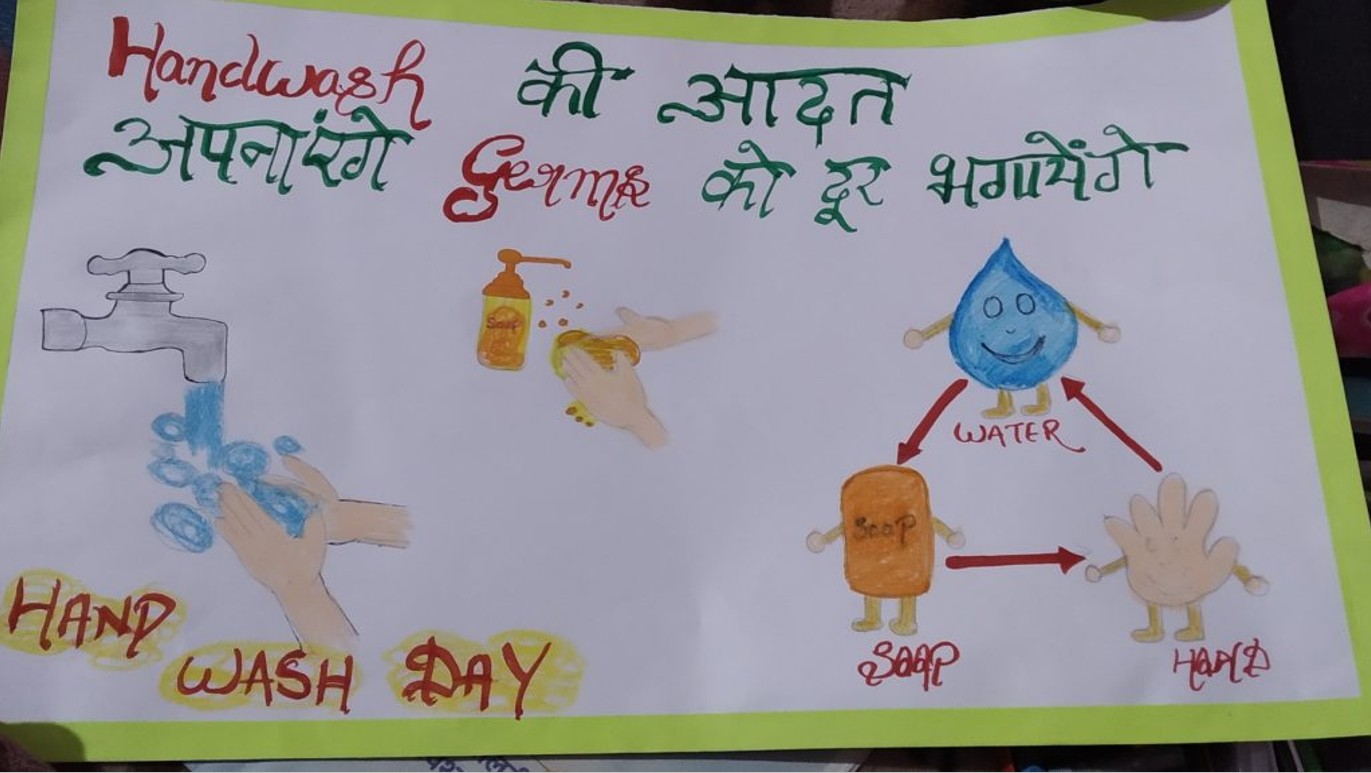 Handwash की आदत
अपनाएंगे Germs को दूर भगायेंगे
Soap
WATER
Soap
SOAP
HAND
HAND
WASH DAY